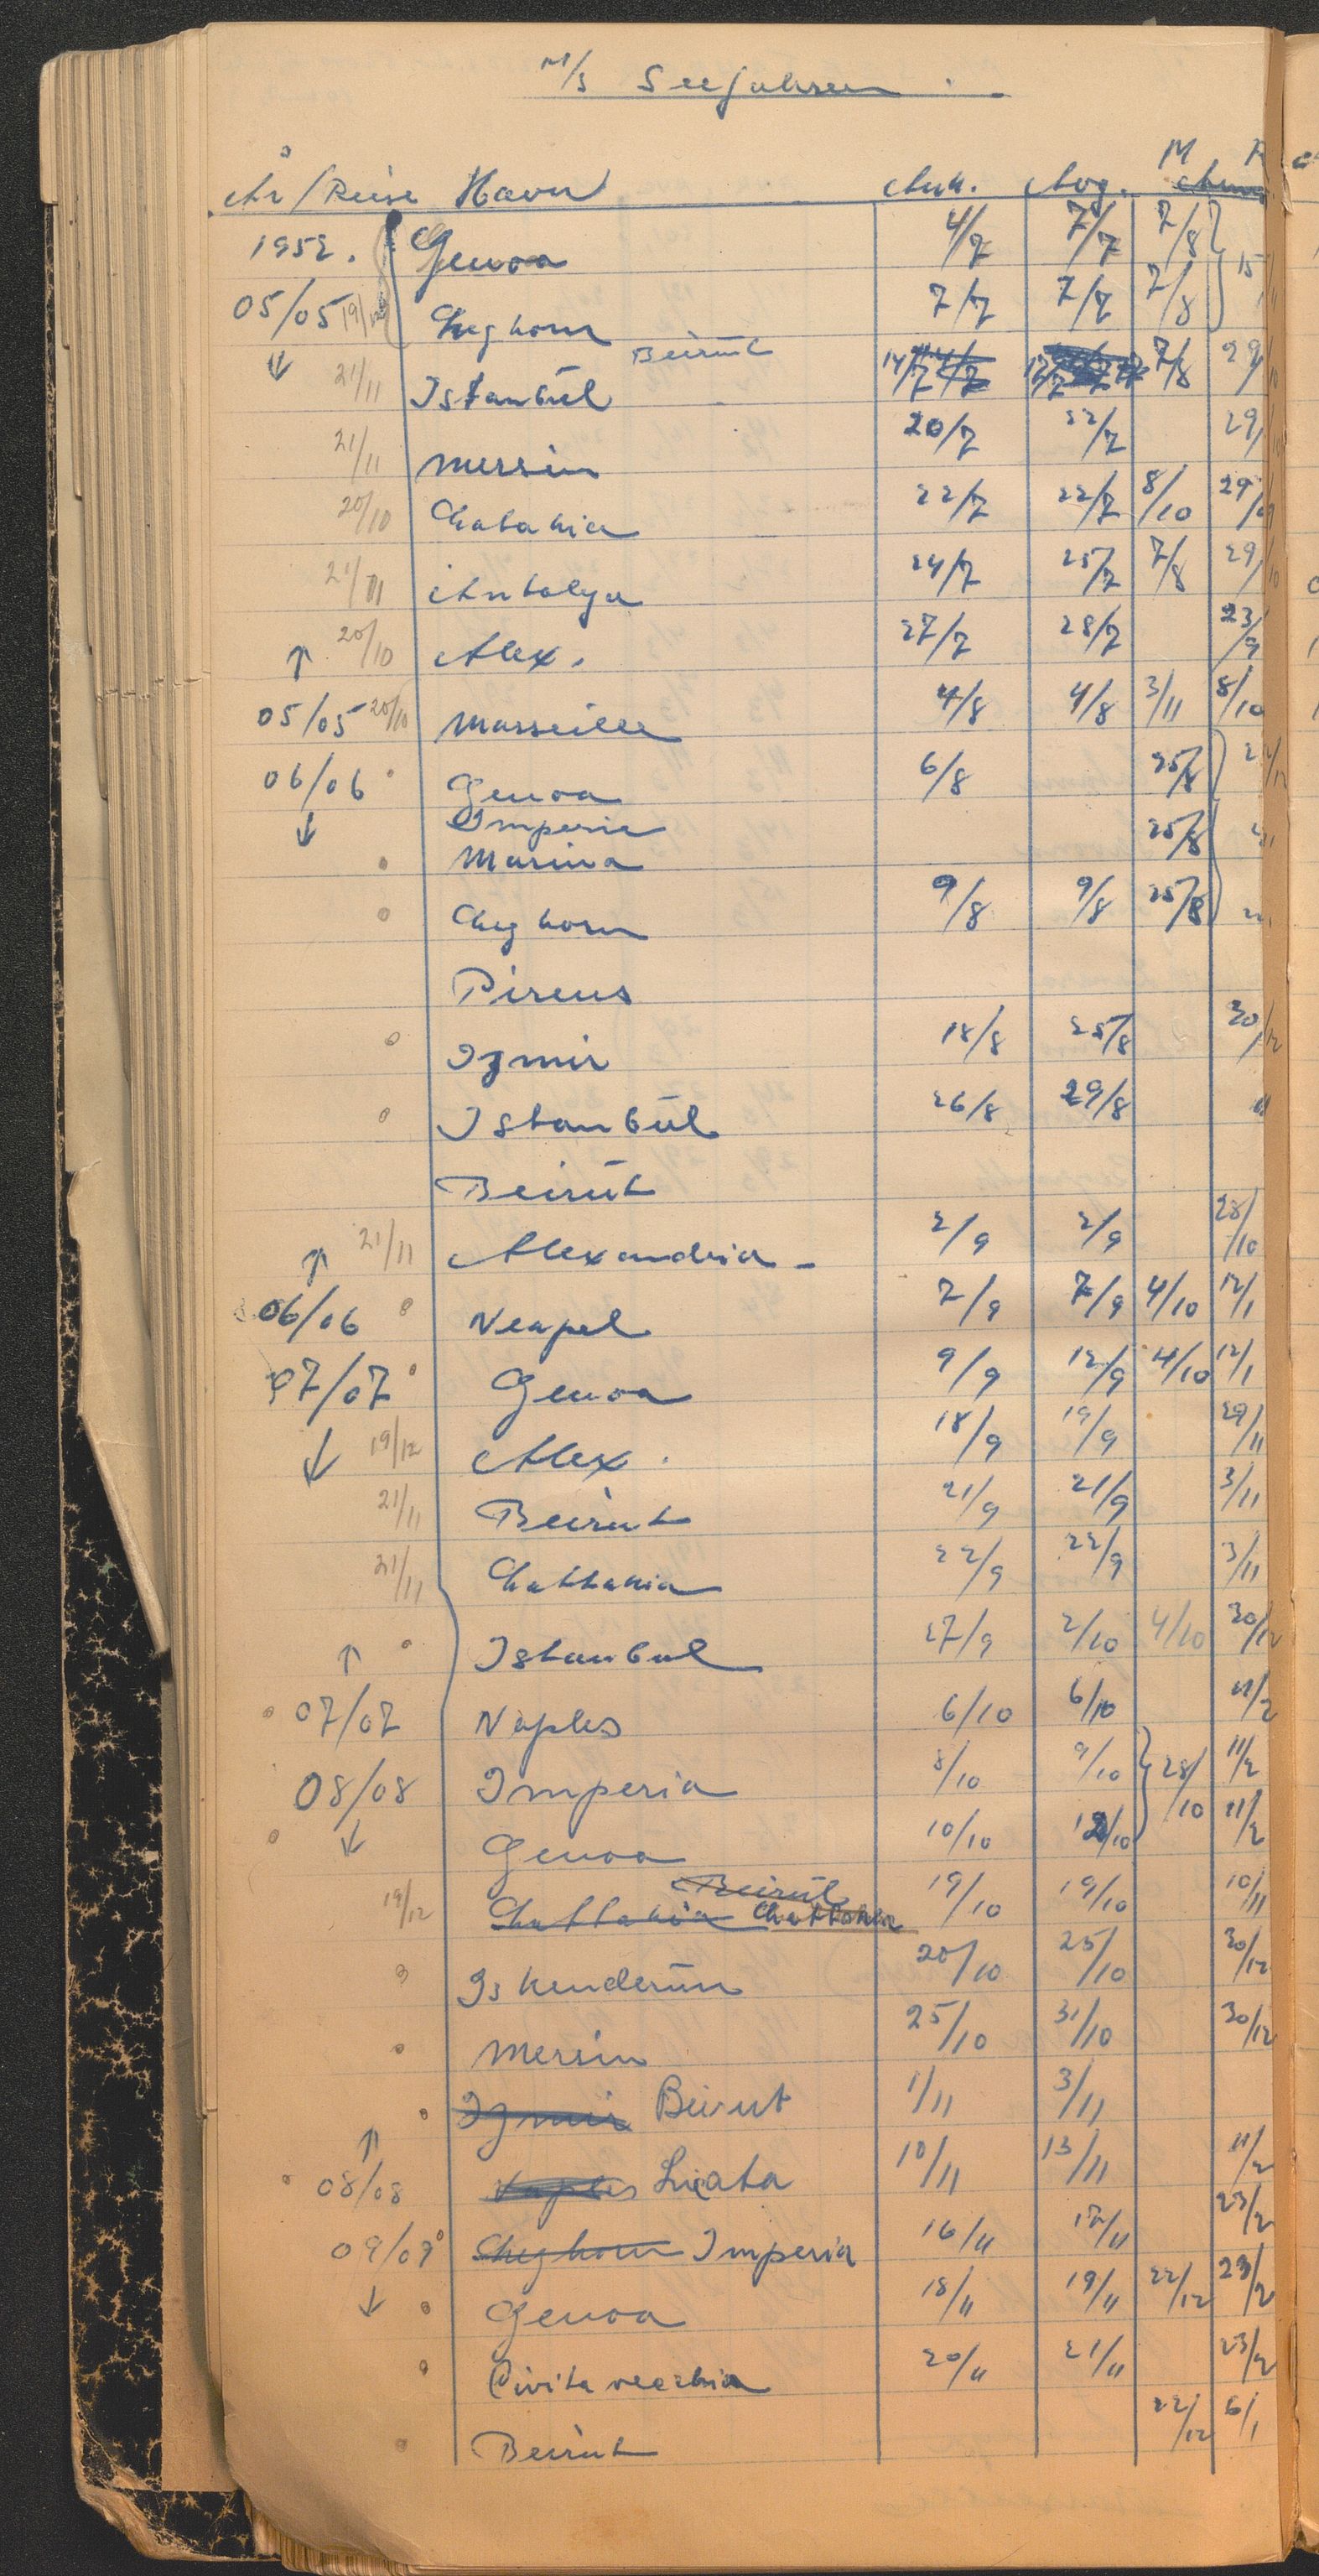 M/S Seefahrer
År/Reise Havn Ank. Avg. M
1952. Genoa 4/7 7/7 7/8
05/05 19/12 Leghorn 7/7 7/7 7/8 15
↓ 21/11 Istanbúl Beirut 14/7 7/8 29/10
21/11 Mersin 20/7 22/7 29/
20/10 Latakia 22/7 22/7 8/10 29/
21/11 Antalya 24/7 25/7 7/8 29/10
↑ 20/10 Alex. 27/7 28/7 23/9
05/05 20/10 Marseille 4/8 4/8 3/11 8/10
06/06 Genoa 6/8 25/8
↓ Imperia 25/8
Marina
Leghorn 9/8 9/8 25/8
Pireus
Izmir 18/8 25/8 30/12
Istanbúl 26/8 29/8
Beirút
↑ 21/11 Alexandria - 2/9 2/9 28/10
06/06 Neapel 7/9 7/9 4/10 12/1
07/07 Genoa 9/9 12/9 4/10 12/1
↓ 19/12 Alex. 18/9 19/9 29/11
21/11 Beirut 21/9 21/9 3/11
21/11 Lattakia 22/9 22/9 3/11
↑ Istanbul 27/9 2/10 4/10 30/12
07/07 Naples 6/10 6/10 11/2
08/08 Imperia 8/10 9/10 28/10 11/2
↓ Genoa 10/10 12/10 11/2
Beirút
19/12 Lattakia Lattakia 19/10 19/10 10/11
Iskenderún 20/10 25/10 30/12
Mersin 25/10 31/10 30/12
Izmir Beirut 1/11 3/11
↑ 08/08 Naples Licata 10/11 13/11 11/2
09/09 Leghorn Imperia 16/11 17/11 23/2
↓ Genoa 18/11 19/11 22/12 23/2
Civitavecchia 20/11 21/11 23/2
Beirut 22/12 6/1